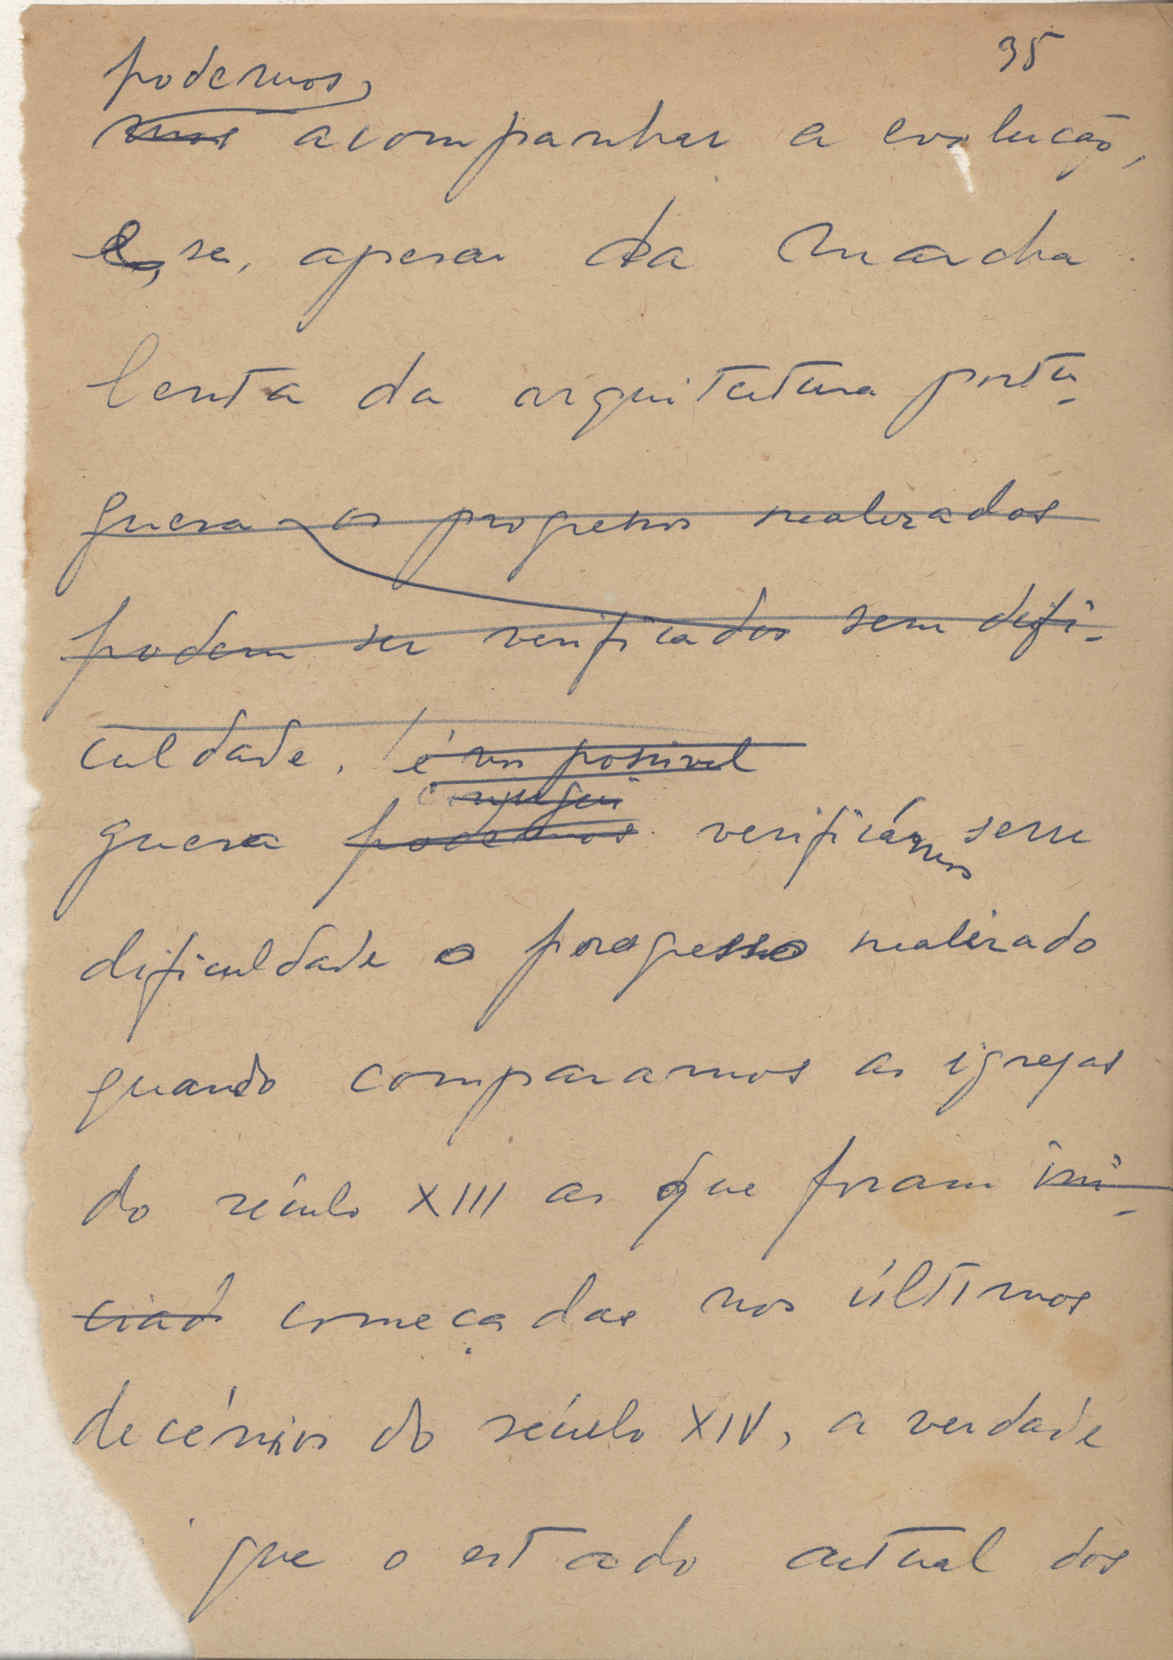 35
podemos,
mos acompanhar a evolução,
e, se, apesar da marcha
lenta da arquitectura portu-
guesa os progressos realizados
podem ser verificados sem difi-
culdade, é nos possivel
guesa podemos verificármos sem
dificuldade o progresso realizado
quando comparamos as igrejas
do século XIII as que foram ini-
ciad começadas nos últimos
decénios do século XIV, a verdade
que o estado actual dos